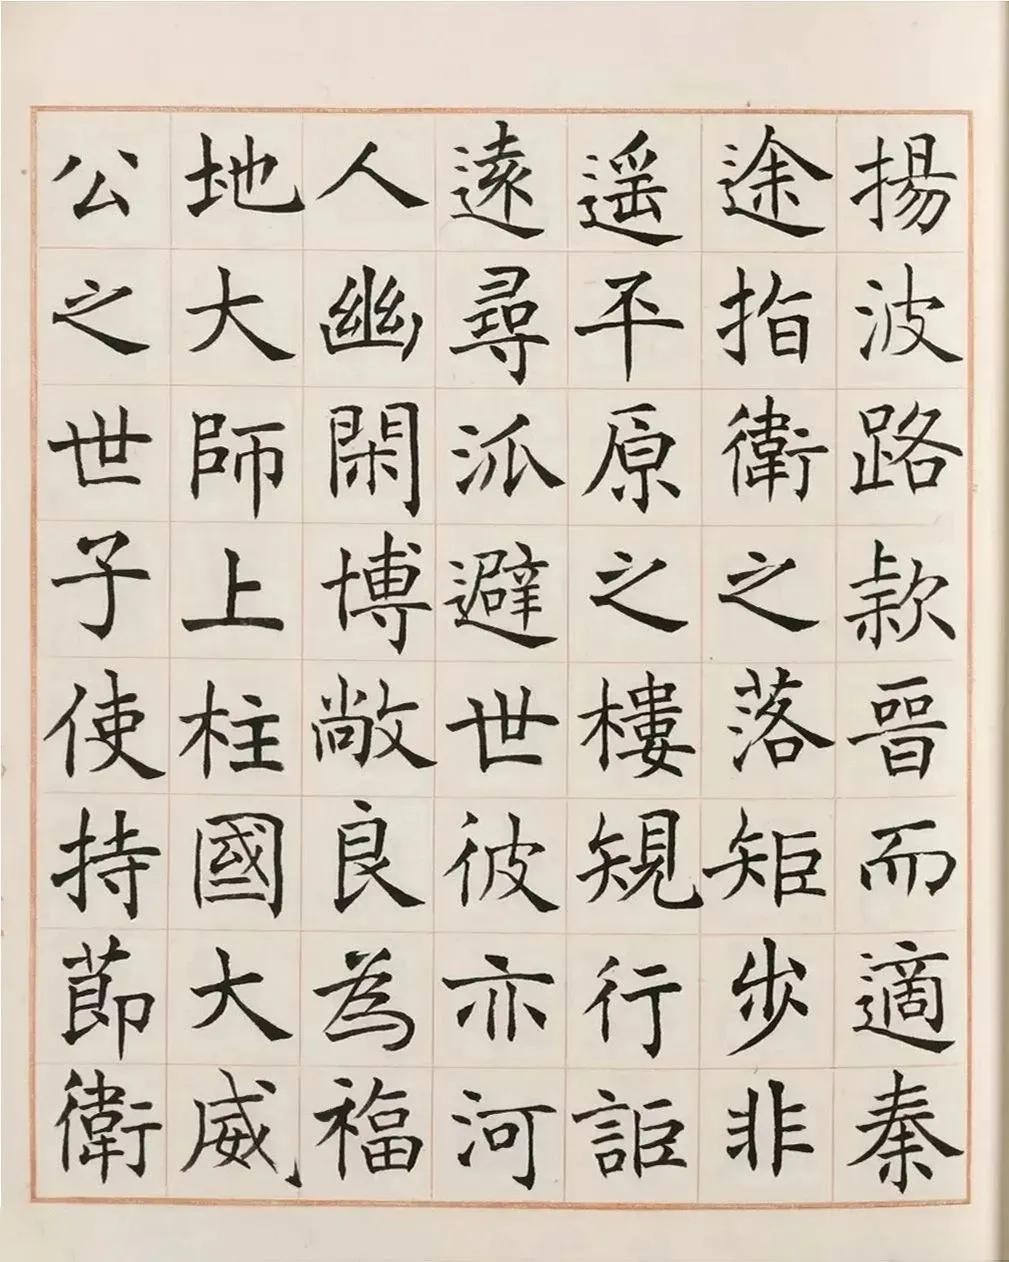 揚波路款晉而適秦
途指衛之落矩步非
遥平原之樓䂓行詎
遠尋派避世彼亦河
人幽閑博敞良為福
地大師上柱國大威
公之世子使持節衛